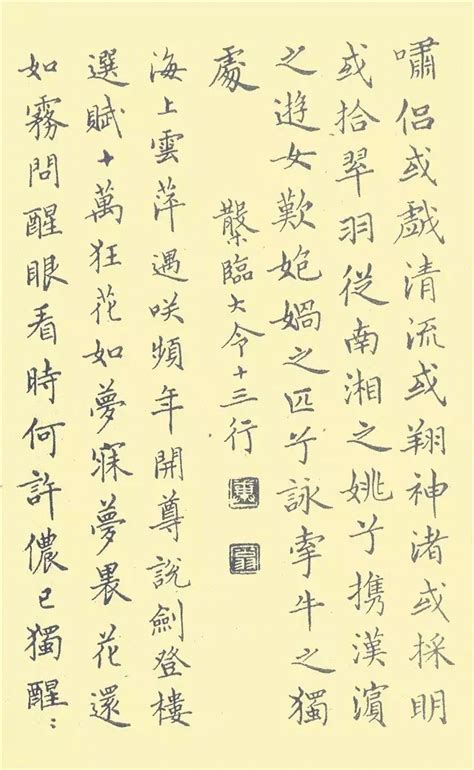 嘯侶或戲清流或翔神渚或採明
或拾翠羽從南湘之姚兮携漢濱
之遊女歎媧之匹兮詠牽牛之獨
處
臨大令十三行
海上雲萍遇咲頻年開尊說劍登樓
選賦十萬狂花如夢寐夢裏花還
如霧問醒眼看時何許儂已獨醒